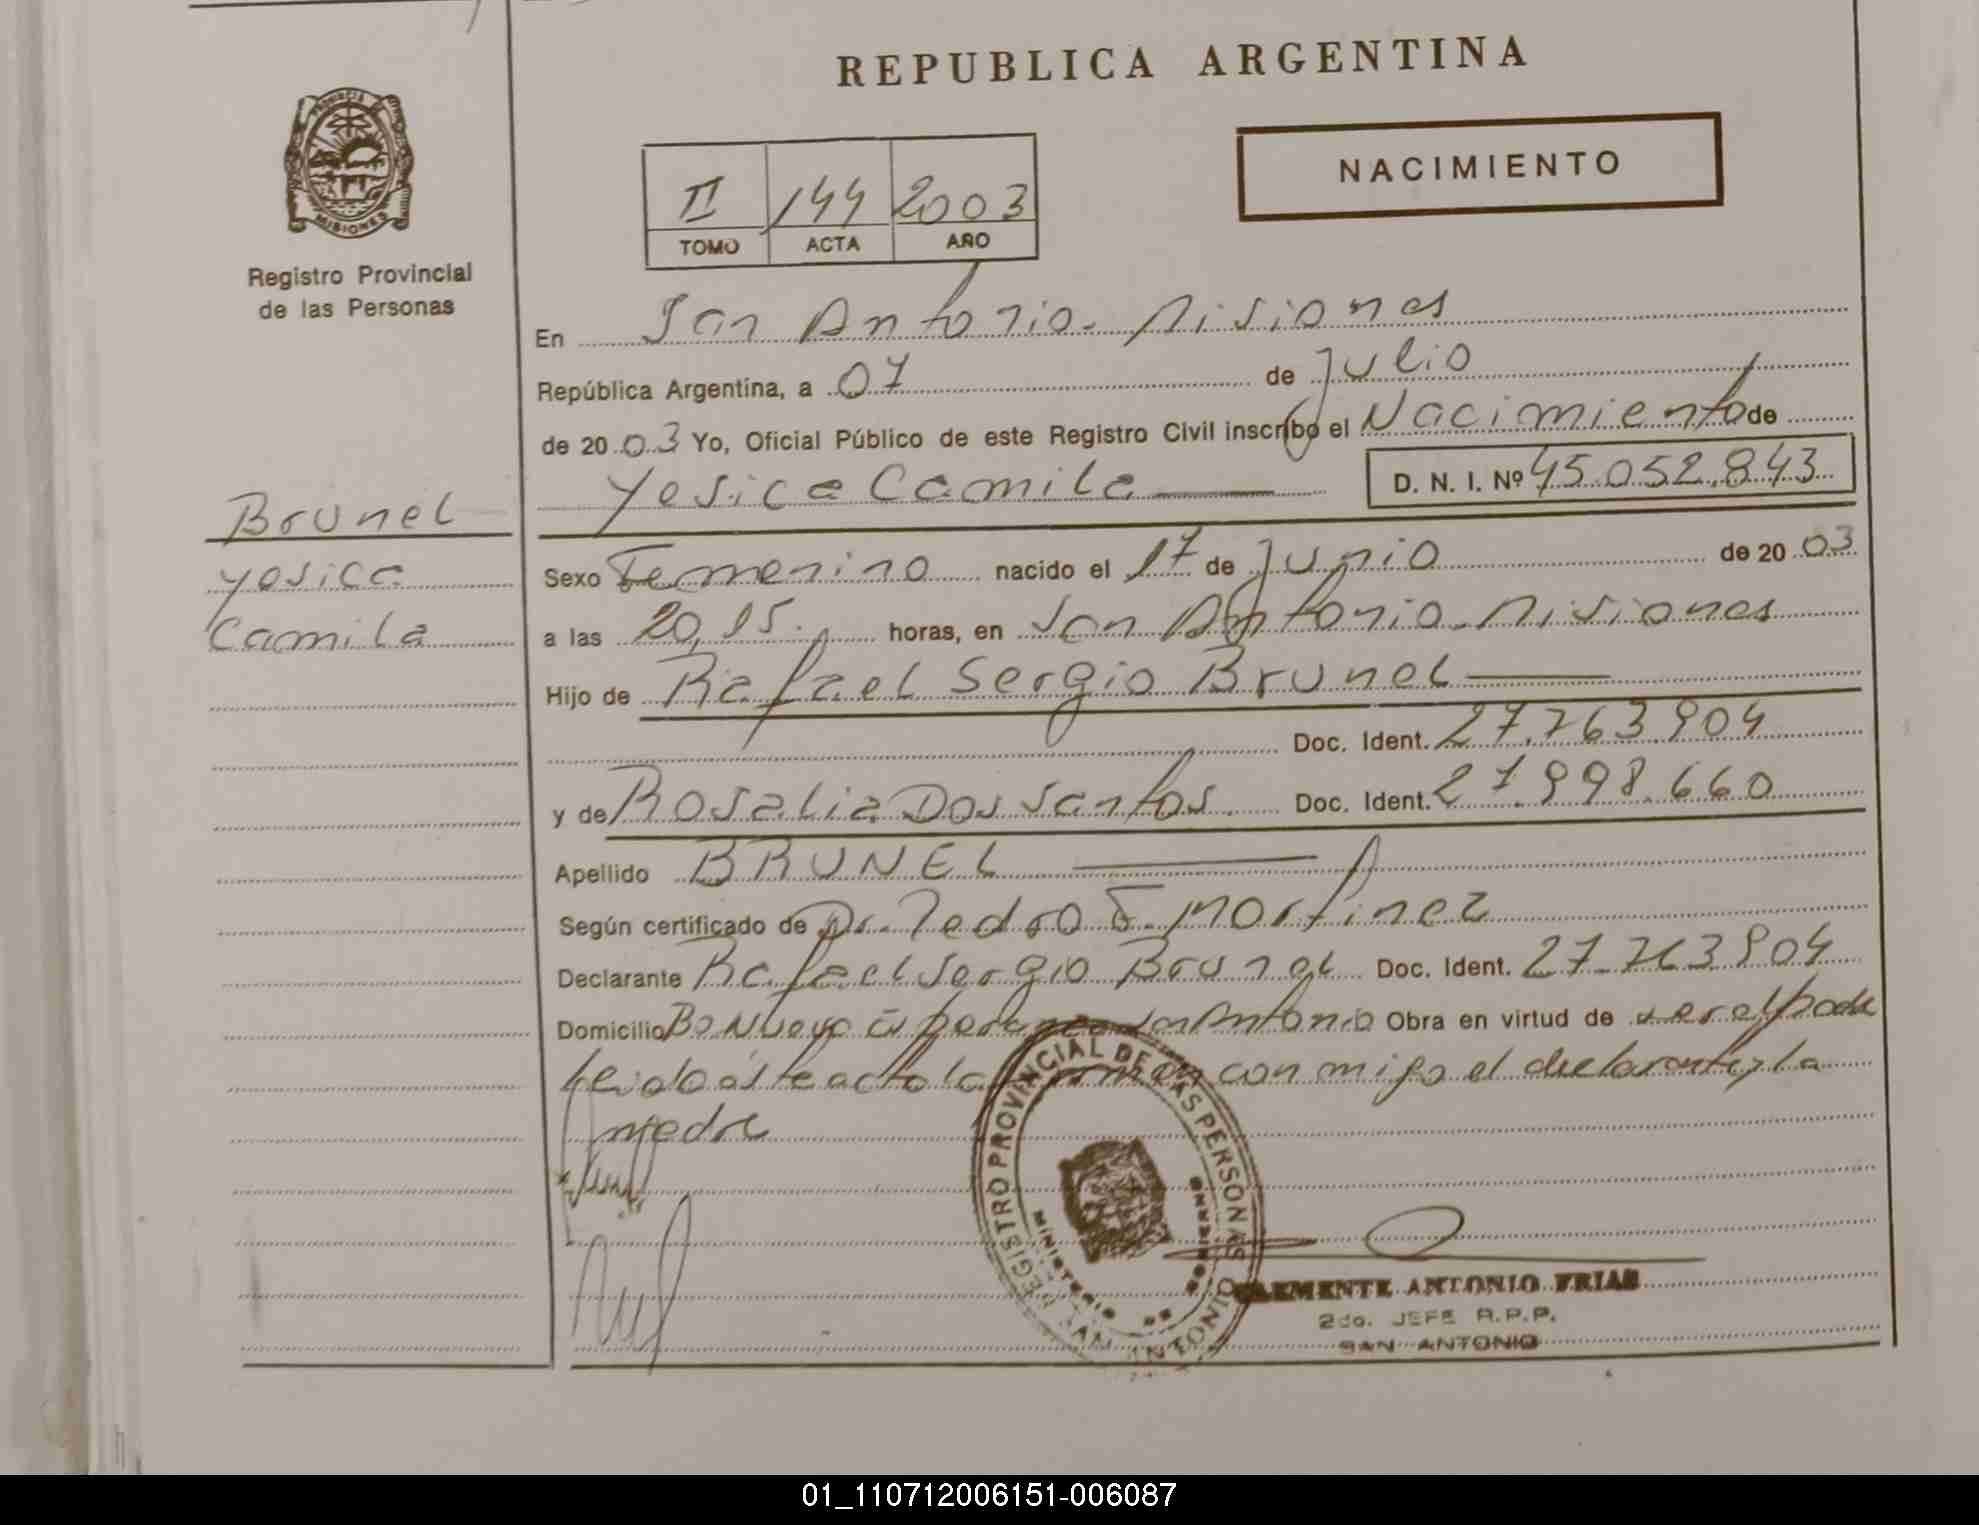 REPUBLICA ARGENTINA
PROVINCIA
MISIONES
Registro Provincial
de las Personas
II 144 2003
TOMO ACTA AÑO
NACIMIENTO
En San Antonio. Misiones
República Argentina, a 07 de Julio
de 20 03 Yo, Oficial Público de este Registro Civil inscribo el Nacimiento de
Yesica Camila D. N. I. Nº 45.052.843
Brunel
Yesica
Camila
Sexo Femenino nacido el 17 de Junio de 20 03
a las 20,15. horas, en San Antonio. Misiones
Hijo de Rafael Sergio Brunel
Doc. Ident. 27.763.904
y de Rosalia Dos Santos Doc. Ident. 27.998.660
Apellido BRUNEL
Según certificado de Dr. Pedro E. Martinez
Declarante Rafael Sergio Brunel Doc. Ident. 27.763.904
Domicilio Bo Nuevo San Antonio Obra en virtud de
leido este acto la firman con migo el declarante y la
madre
REGISTRO PROVINCIAL DE LAS PERSONAS
MINISTERIO
SAN ANTONIO
CLEMENTE ANTONIO FRIAS
2do. JEFE R.P.P.
SAN ANTONIO
01_110712006151-006087